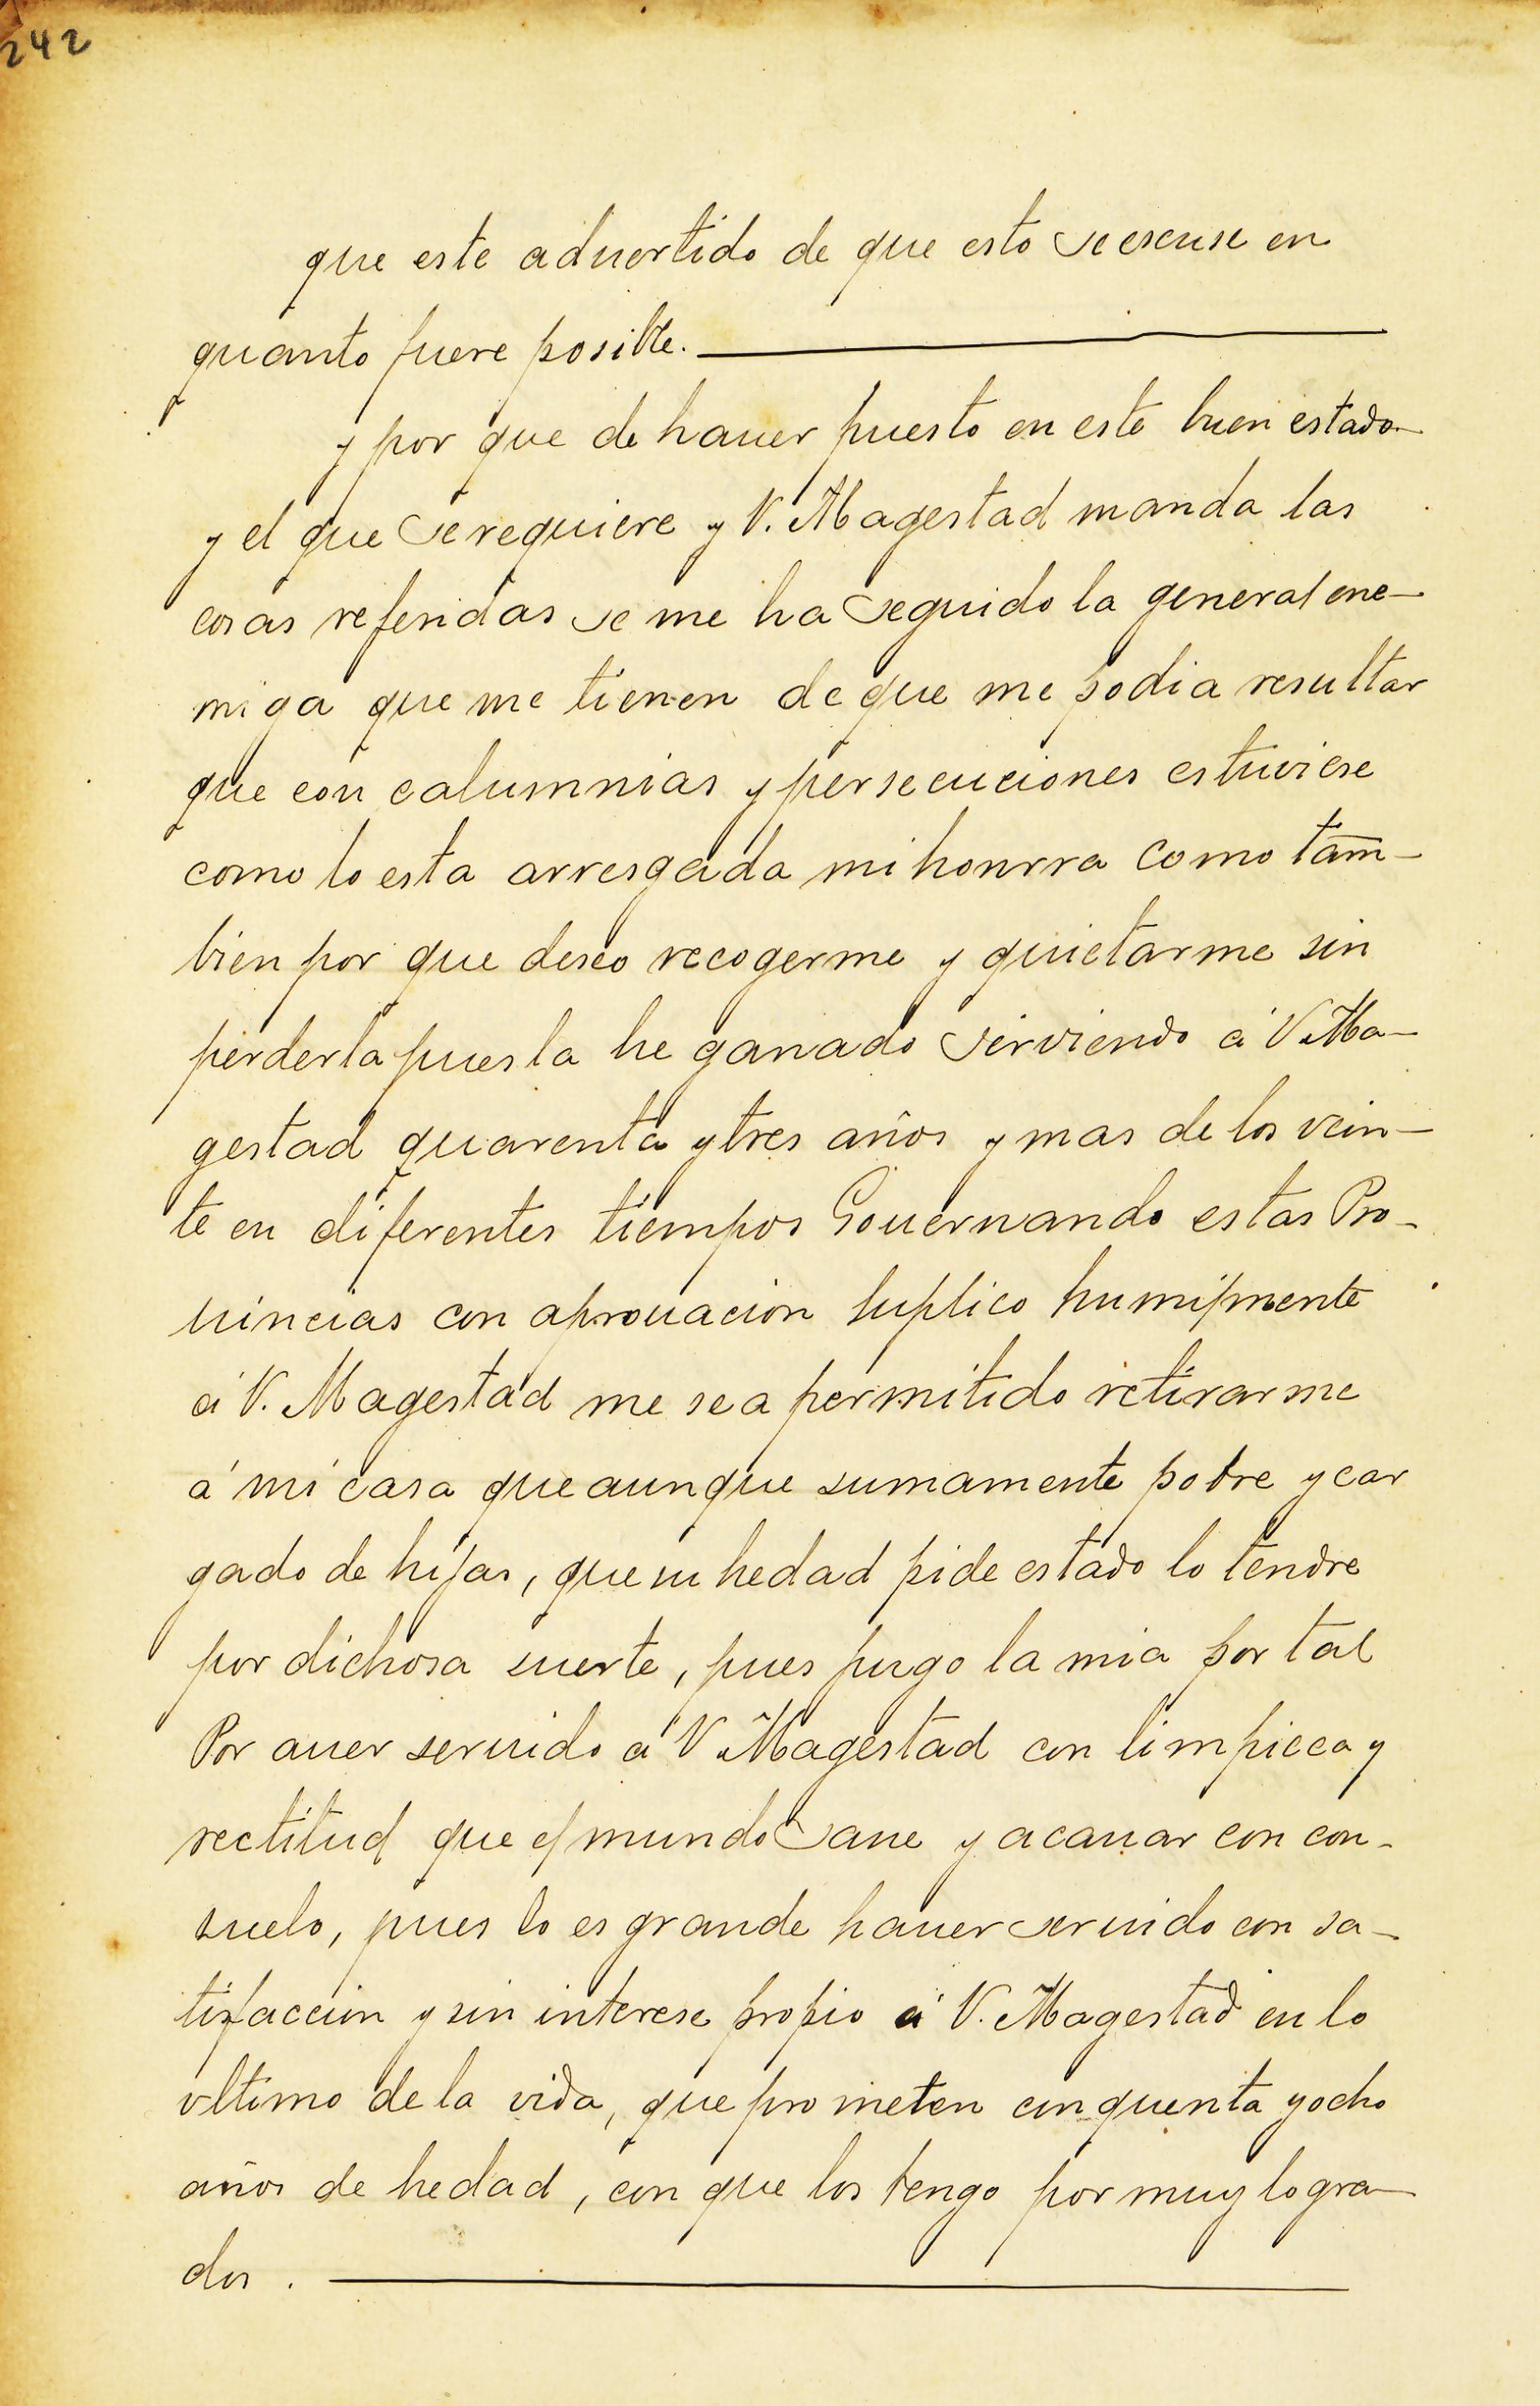 242
que este aduertido de que esto se escuse en
quanto fuere posible.
y por que de hauer puesto en este buen estado
y el que se requiere y V. Magestad manda las
cosas referidas se me ha seguido la general ene-
miga que me tienen de que me podia resultar
que con calumnias y persecuciones estuviese
como lo esta arresgada mi honrra como tam-
bien por que deseo recogerme y quietarme sin
perderla pues la he ganado sirviendo á V Ma-
gestad quarenta y tres años y mas de los vein-
te en diferentes tiempos Gouernando estas Pro-
uincias con aprouacion suplico humilmente
á V. Magestad me sea permitido retirarme
á mi casa que aunque sumamente pobre y car
gado de hijas, que su hedad pide estado lo tendre
por dichosa suerte, pues jugo la mia por tal
Por auer seruido á V Magestad con limpieca y
rectitud que el mundo saue y acauar con con-
suelo, pues lo es grande hauer seruido con sa-
tisfaccion y sin interese propio á V. Magestad en lo
vltimo de la vida, que prometen cinquenta y ocho
años de hedad, con que los tengo por muy logra-
dos.